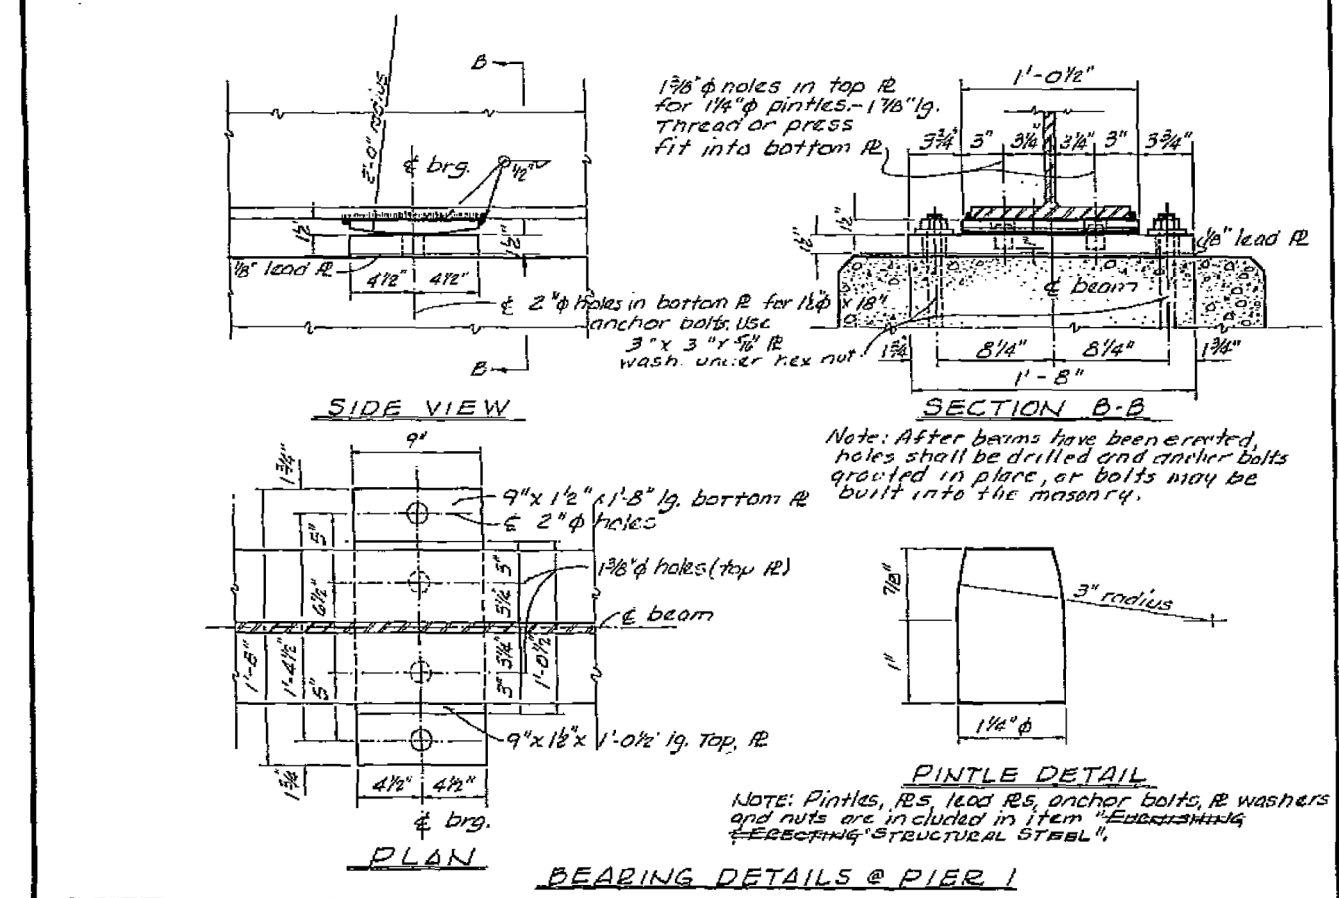 B
2'-0" radius
₵ brg.
1/2"
1½"
1½"
⅛" lead ℞
4½" 4½"
₵ 2"ϕ holes in bottom ℞ for 1¼ϕ x 18"
anchor bolts. Use
3" x 3" x 5/16" ℞
wash. under hex nut.
B
SIDE VIEW
1⅜"ϕ holes in top ℞
for 1¼"ϕ pintles.-1⅞"lg.
Thread or press
fit into bottom ℞
1'-0½"
3¾" 3" 3¼" 3¼" 3" 3¾"
1½"
1½"
1"
⅛" lead ℞
₵ beam
1¾" 8¼" 8¼" 1¾"
1'-8"
SECTION B-B
Note: After beams have been erected,
holes shall be drilled and anchor bolts
grouted in place, or bolts may be
built into the masonry.
9"
1¾"
9"x 1½" x 1'-8" lg. bottom ℞
₵ 2"ϕ holes
5"
1⅜"ϕ holes (top ℞)
6½"
3"
3¼"
₵ beam
1'-8"
1'-4½"
5"
3" 3¼"
1'-0½"
9"x 1½"x 1'-0½" lg. Top, ℞
1¾"
4½" 4½"
₵ brg.
PLAN
⅞"
3" radius
1"
1¼"ϕ
PINTLE DETAIL
NOTE: Pintles, ℞s, lead ℞s, anchor bolts, ℞ washers
and nuts are included in item "FURNISHING
& ERECTING STRUCTURAL STEEL".
BEARING DETAILS @ PIER 1